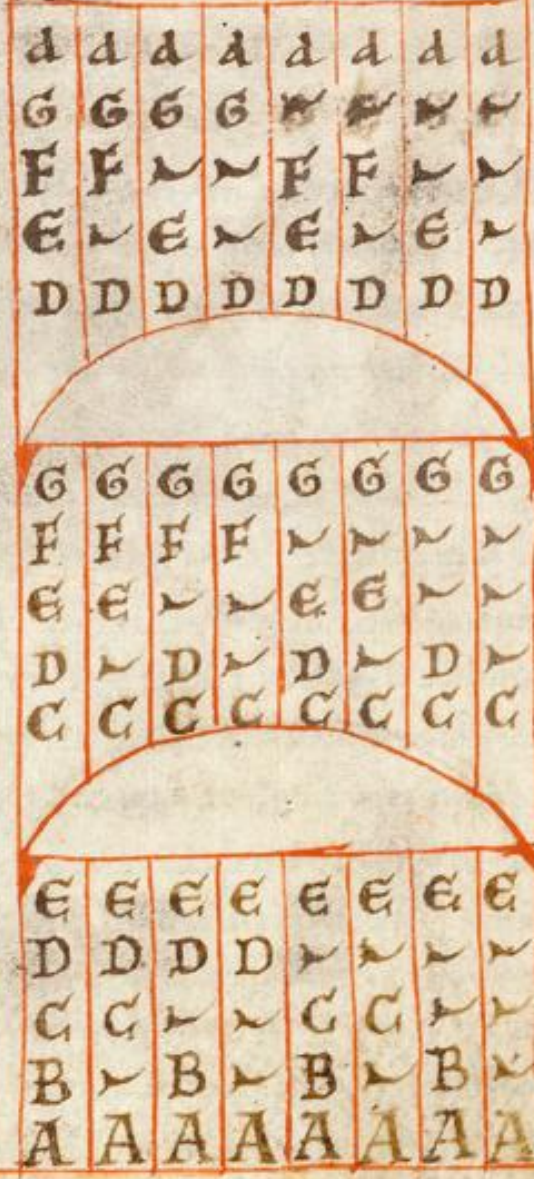 a a a a a a a a
G G G G ~ ~ ~ ~
F F ~ ~ F F ~ ~
E ~ E ~ E ~ E ~
D D D D D D D D
G G G G G G G G
F F F F ~ ~ ~ ~
E E ~ ~ E E ~ ~
D ~ D ~ D ~ D ~
C C C C C C C C
E E E E E E E E
D D D D ~ ~ ~ ~
C C ~ ~ C C ~ ~
B ~ B ~ B ~ B ~
A A A A A A A A